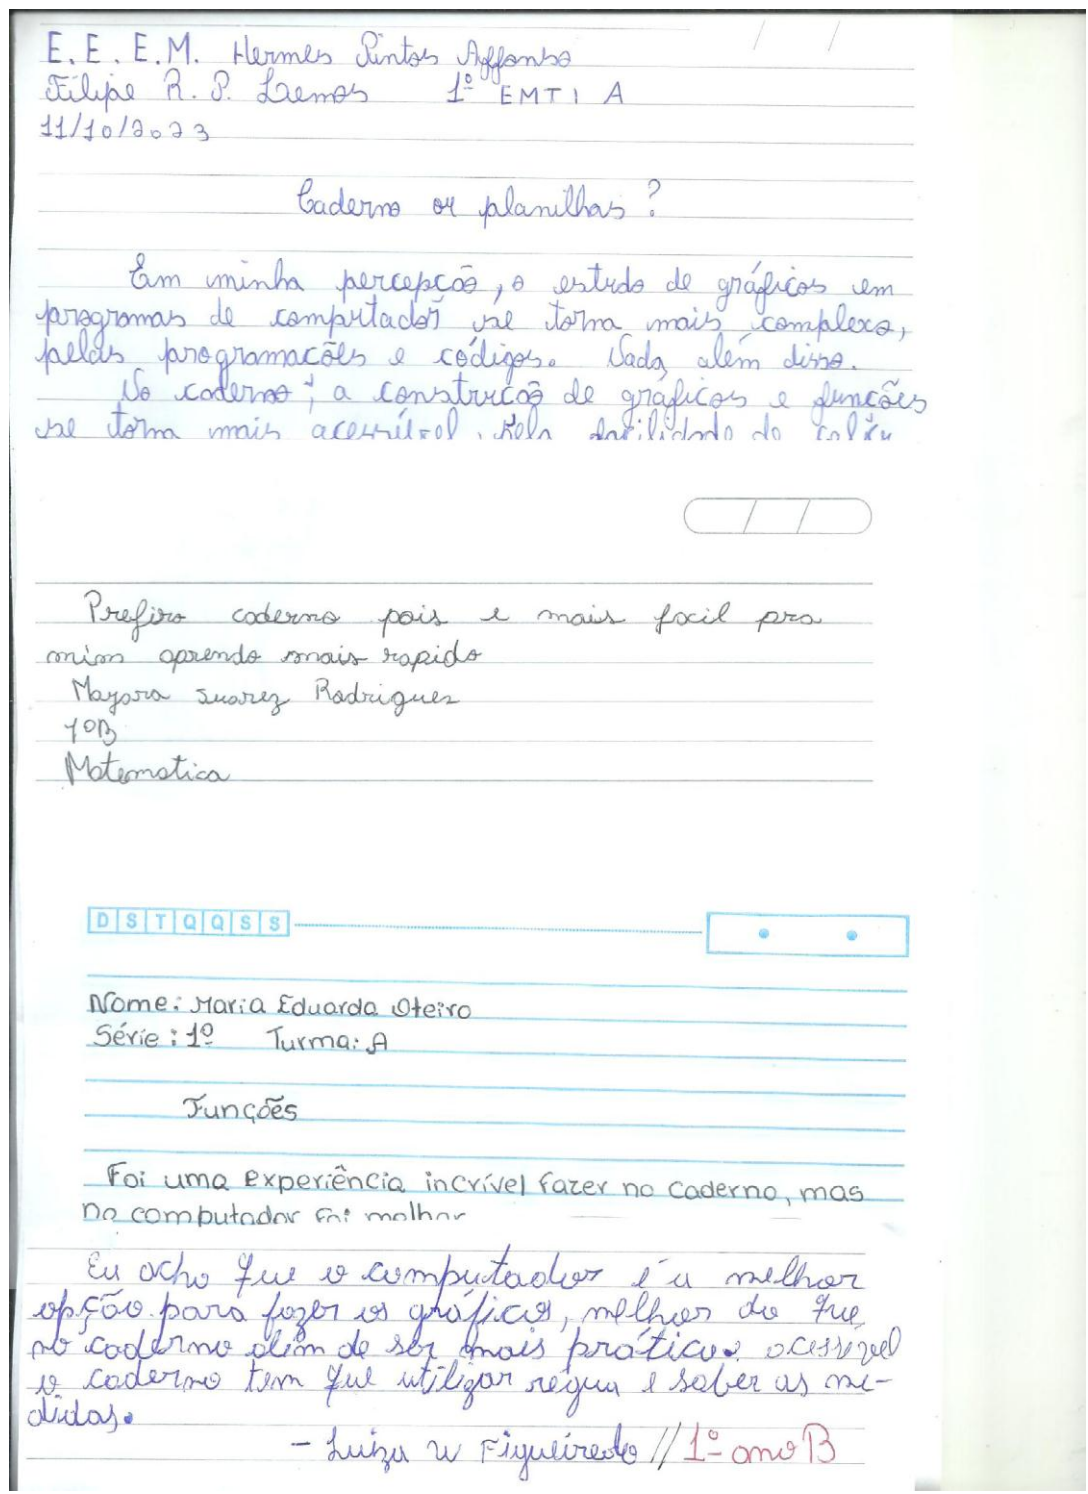 E.E.E.M. Hermes Pintos Affonso
Filipe R. P. Lemos 1º EMTI A
11/10/2023
Caderno ou planilhas?
Em minha percepção, o estudo de gráficos em
programas de computador se torna mais complexo,
pelas programacões e códigos. Nada além disso.
No caderno, a construcão de gráficos e funcões
se torna mais acessível, pela facilidade do
Prefiro caderno pois e mais facil pra
mim aprendo mais rapido
Mayara Suarez Rodrigues
1ºB
Matematica
D S T Q Q S S
Nome: Maria Eduarda Oteiro
Série: 1º Turma: A
Funções
Foi uma experiência incrível fazer no caderno, mas
no computador foi melhor
Eu acho que o computador é a melhor
opção para fazer os gráficos, melhor do que
no caderno além de ser mais prático e acessivel
o caderno tem que utilizar régua e saber as me-
didas.
- Luiza W Figueiredo // 1º ano B